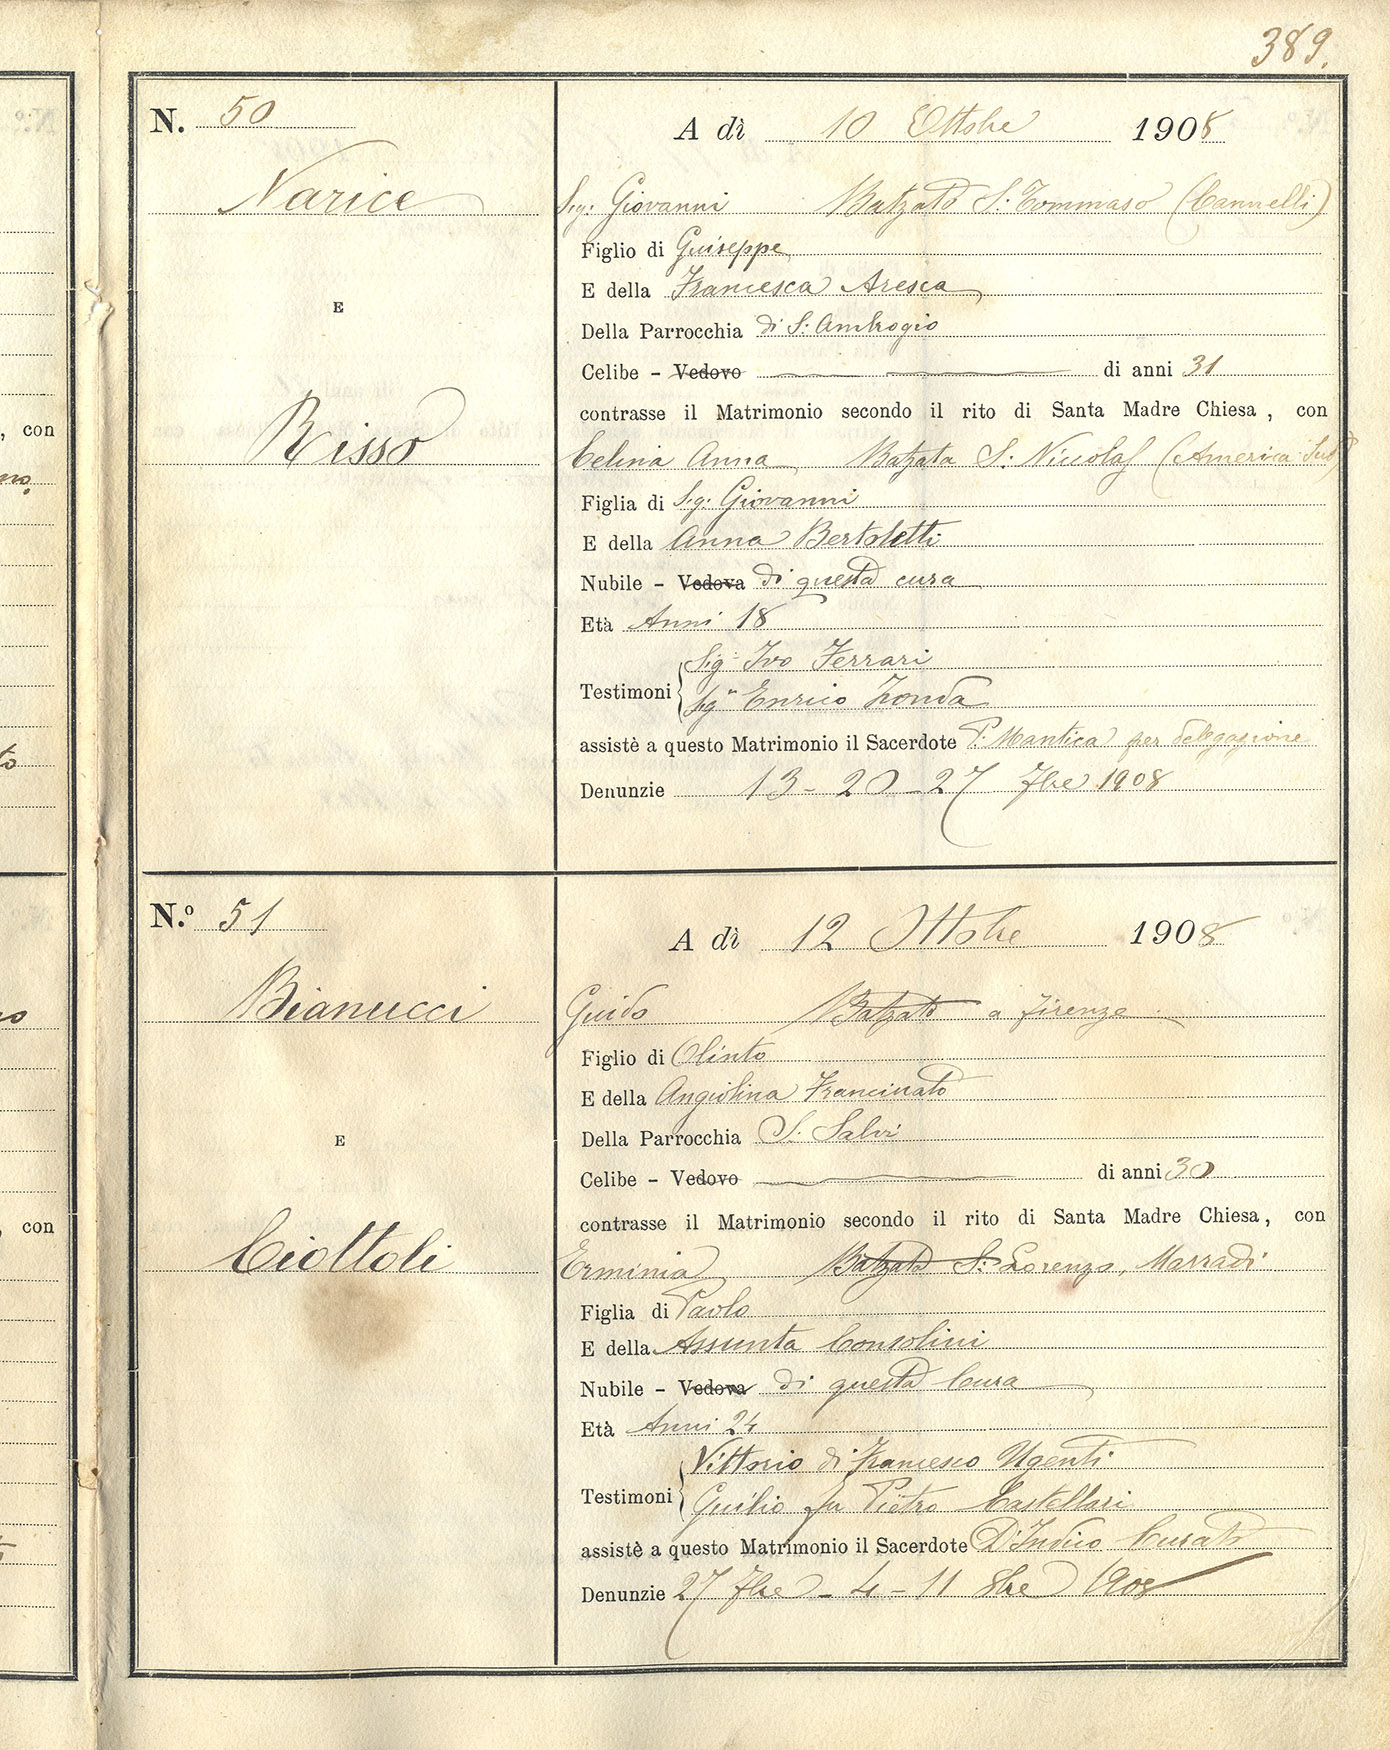 389.
N. 50
A dì 10 Ottobre 1908
Narice
Sig: Giovanni Batzato S. Tommaso (Cannelli)
Figlio di Guiseppe
E della Francesca Aresca
E
Della Parrocchia di S. Ambrogio
Celibe - Vedovo di anni 31
contrasse il Matrimonio secondo il rito di Santa Madre Chiesa, con
Risso
Celina Anna Batzata S. Niccolas (America Sud)
Figlia di Sig. Giovanni
E della Anna Bertoletti
Nubile - Vedova di questa cura
Età Anni 18
Testimoni Sig. Ivo Ferrari
Sigr Enrico Zonda
assistè a questo Matrimonio il Sacerdote P. Mantica per delegazione
Denunzie 13 - 20 - 27 7bre 1908
N.o 51
A dì 12 Ottobre 1908
Bianucci
Guido Batzato a Firenze
Figlio di Olinto
E della Angiolina Francinato
E
Della Parrocchia S. Salvi
Celibe - Vedovo di anni 30
contrasse il Matrimonio secondo il rito di Santa Madre Chiesa, con
Ciottoli
Erminia Batzata S: Lorenzo, Marradi
Figlia di Paolo
E della Assunta Consolini
Nubile - Vedova di questa Cura
Età Anni 24
Testimoni Vittorio di Francesco Ugenti
Guilio fu Pietro Castellari
assistè a questo Matrimonio il Sacerdote D'Indico Curato
Denunzie 27 7bre - 4 - 11 8bre 1908
, con
, con